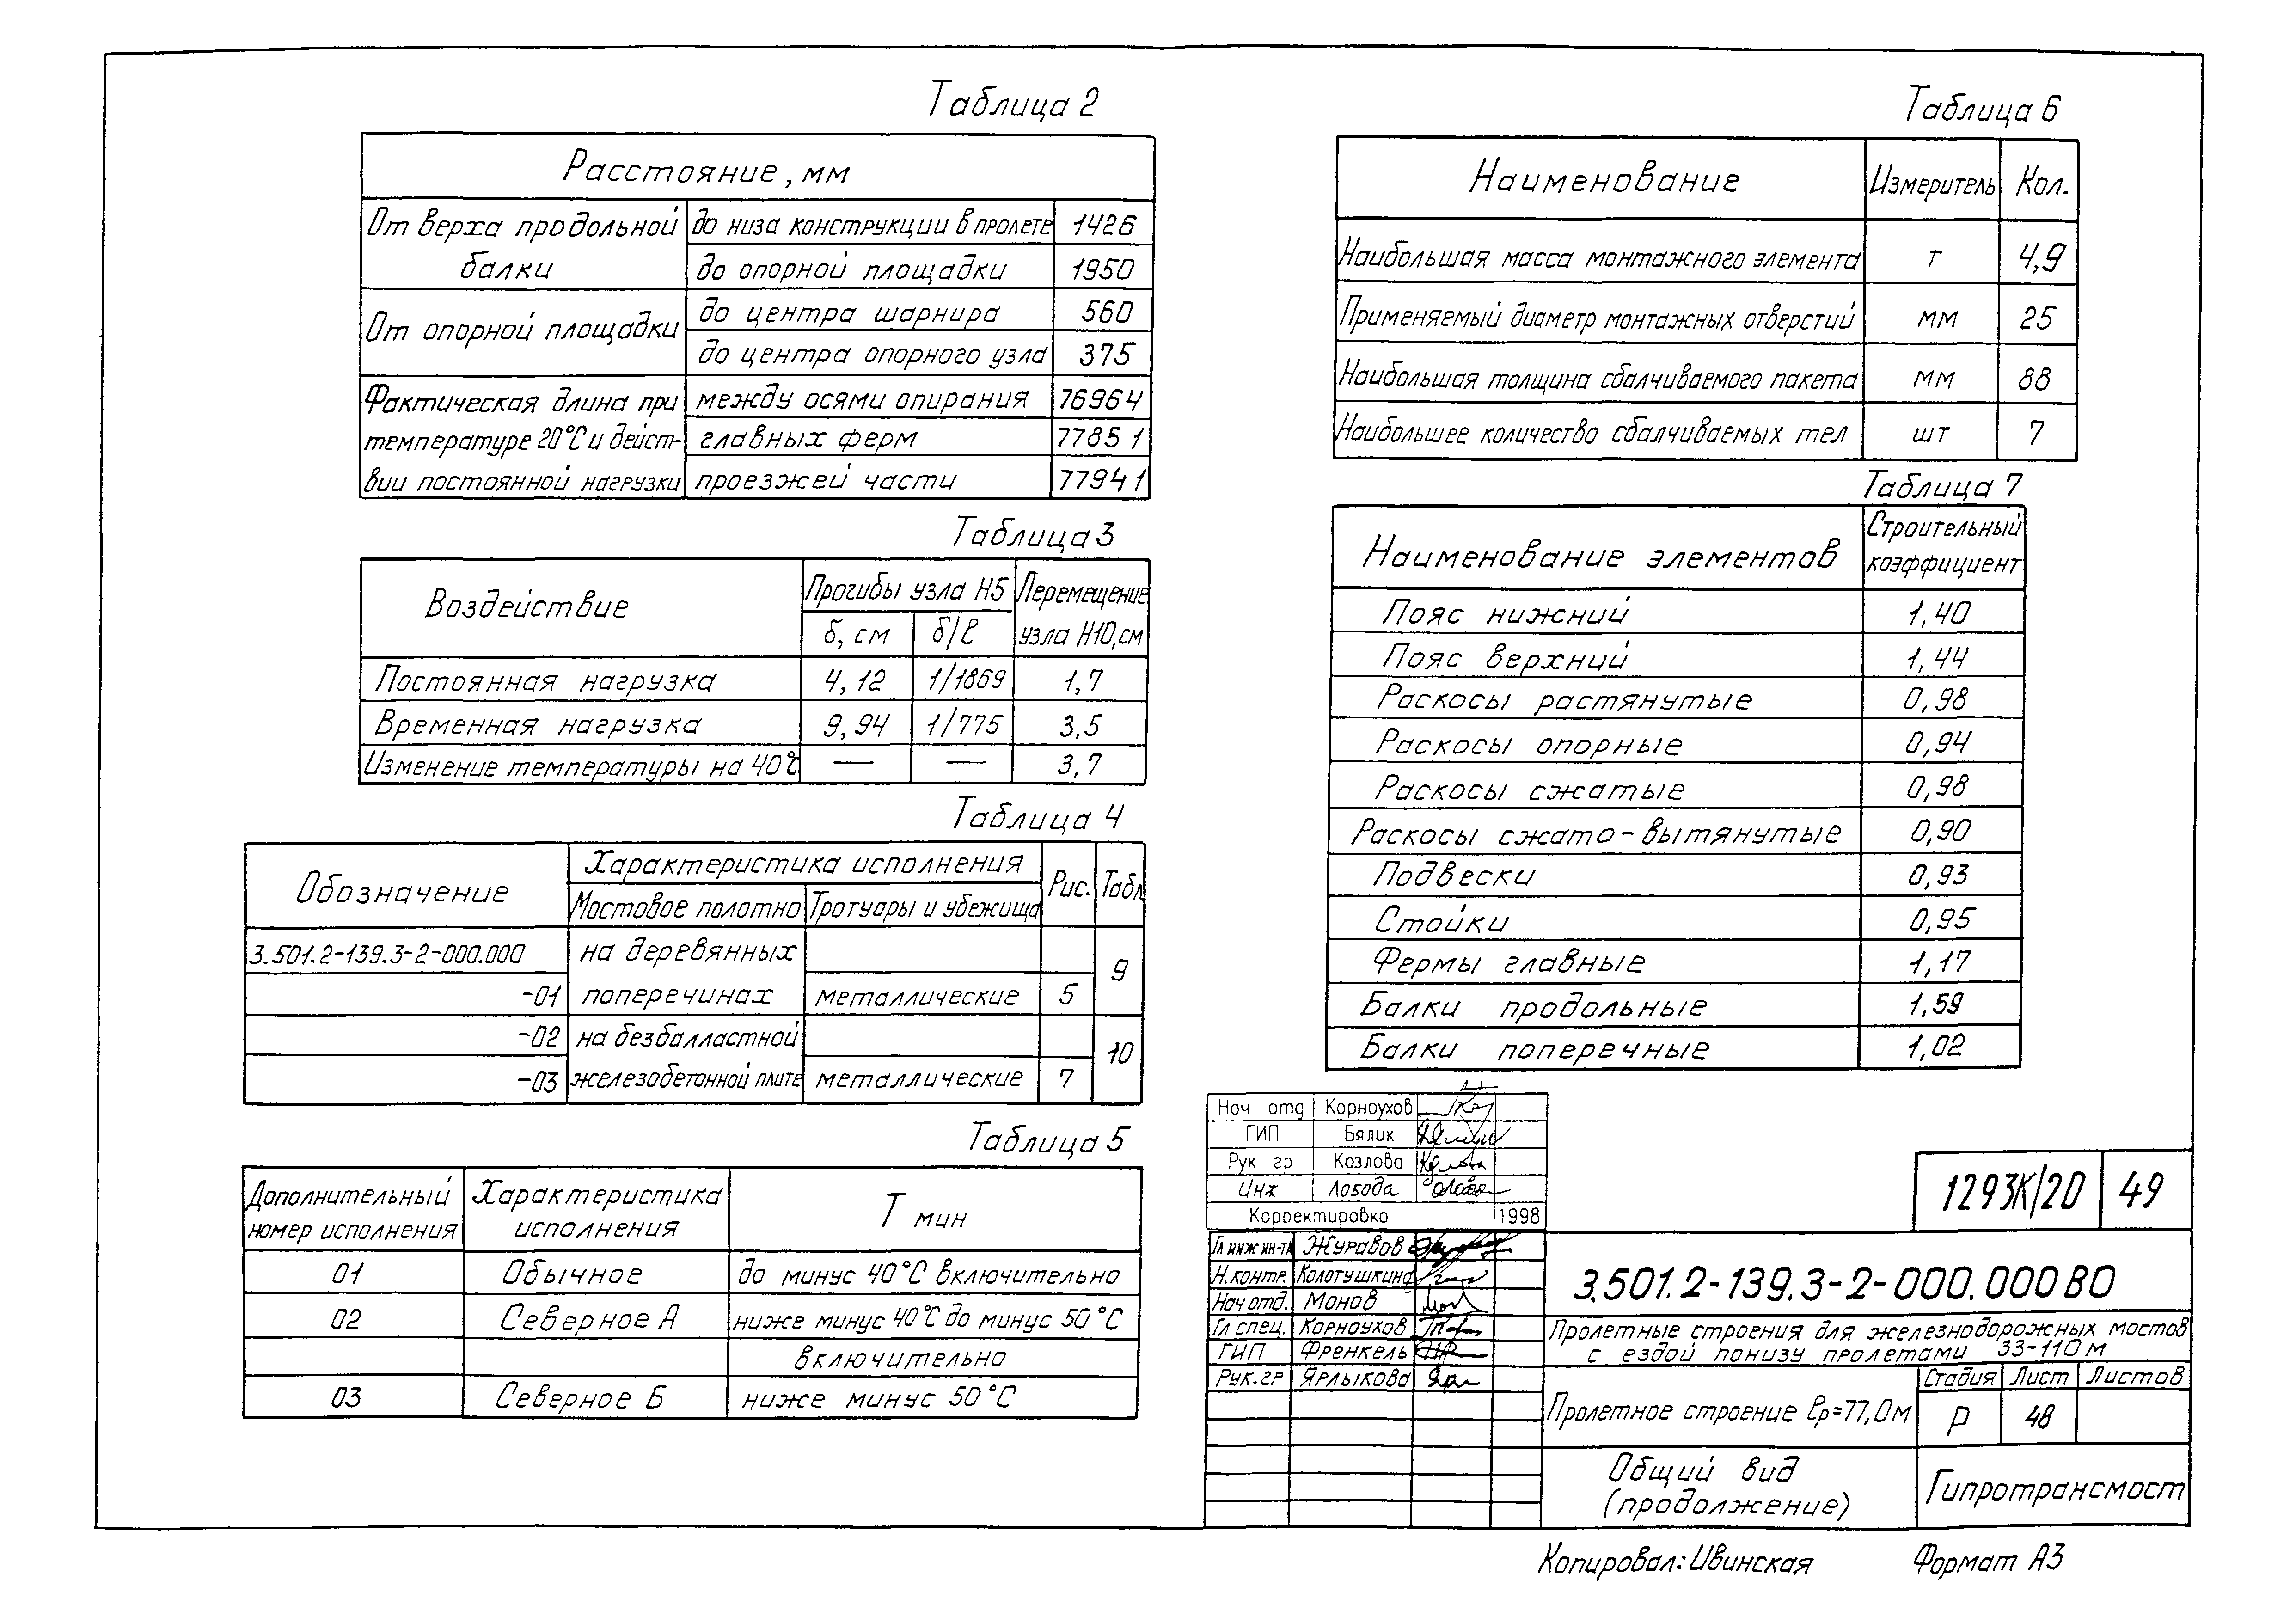 Таблица 2
Расстояние, мм
От верха продольной балки
до низа конструкции в пролете 1426
до опорной площадки 1950
От опорной площадки
до центра шарнира 560
до центра опорного узла 375
Фактическая длина при температуре 20°С и дейст-
вии постоянной нагрузки
между осями опирания 76964
главных ферм 77851
проезжей части 77941
Таблица 3
Воздействие
Прогибы узла Н5
Перемещение узла Н10, см
δ, см
δ/ℓ
Постоянная нагрузка 4,12 1/1869 1,7
Временная нагрузка 9,94 1/775 3,5
Изменение температуры на 40°С — — 3,7
Таблица 4
Обозначение
Характеристика исполнения
Рис.
Табл
Мостовое полотно
Тротуары и убежища
3.501.2-139.3-2-000.000 на деревянных
9
-01 поперечинах металлические 5
-02 на безбалластной
10
-03 железобетонной плите металлические 7
Таблица 5
Дополнительный номер исполнения
Характеристика исполнения
Т мин
01 Обычное до минус 40°С включительно
02 Северное А ниже минус 40°С до минус 50°С
включительно
03 Северное Б ниже минус 50°С
Таблица 6
Наименование Измеритель Кол.
Наибольшая масса монтажного элемента т 4,9
Применяемый диаметр монтажных отверстий мм 25
Наибольшая толщина сбалчиваемого пакета мм 88
Наибольшее количество сбалчиваемых тел шт 7
Таблица 7
Наименование элементов
Строительный коэффициент
Пояс нижний 1,40
Пояс верхний 1,44
Раскосы растянутые 0,98
Раскосы опорные 0,94
Раскосы сжатые 0,98
Раскосы сжато-вытянутые 0,90
Подвески 0,93
Стойки 0,95
Фермы главные 1,17
Балки продольные 1,59
Балки поперечные 1,02
Нач отд Корноухов
ГИП Бялик
Рук гр Козлова
Инж Лобода
Корректировка 1998
Гл инж ин-та Журавов
Н.контр. Колотушкина
Нач отд. Монов
Гл спец. Корноухов
ГИП Френкель
Рук.гр Ярлыкова
1293К/20 49
3.501.2-139.3-2-000.000 ВО
Пролетные строения для железнодорожных мостов
с ездой понизу пролетами 33-110 м
Пролетное строение ℓр=77,0м
Стадия Лист Листов
Р 48
Общий вид
(продолжение)
Гипротрансмост
Копировал: Ивинская
Формат А3